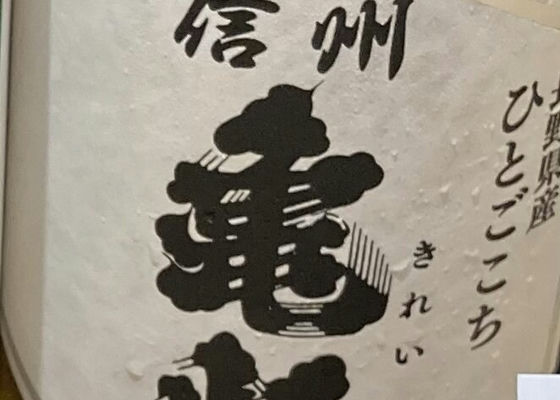 信州
亀
きれい
長野県産
ひとごこち